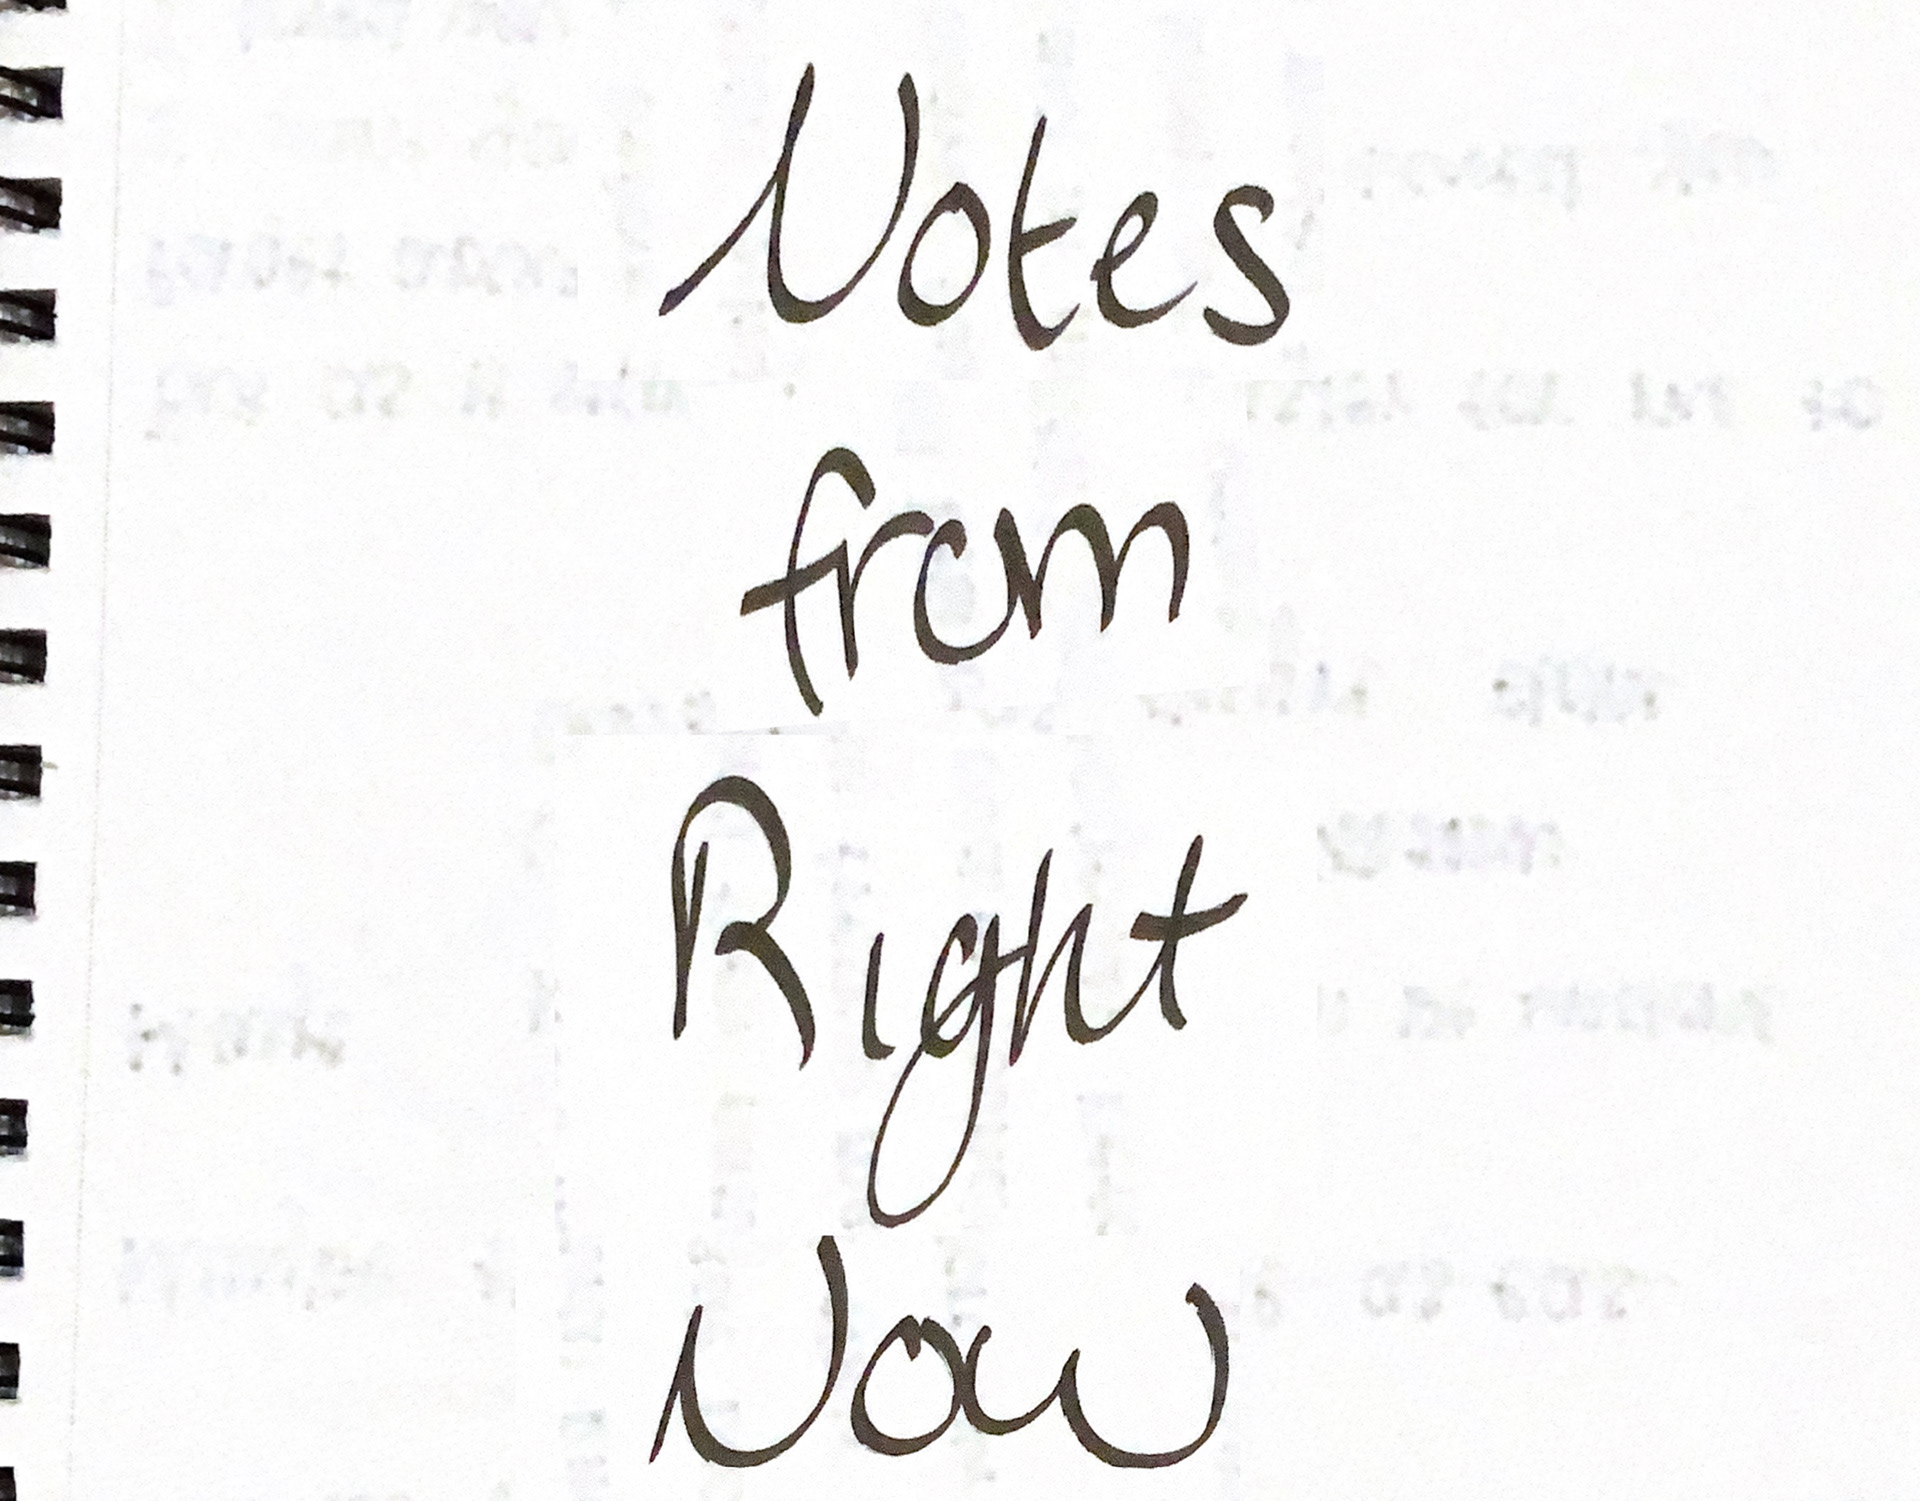 Notes
from
Right
Now